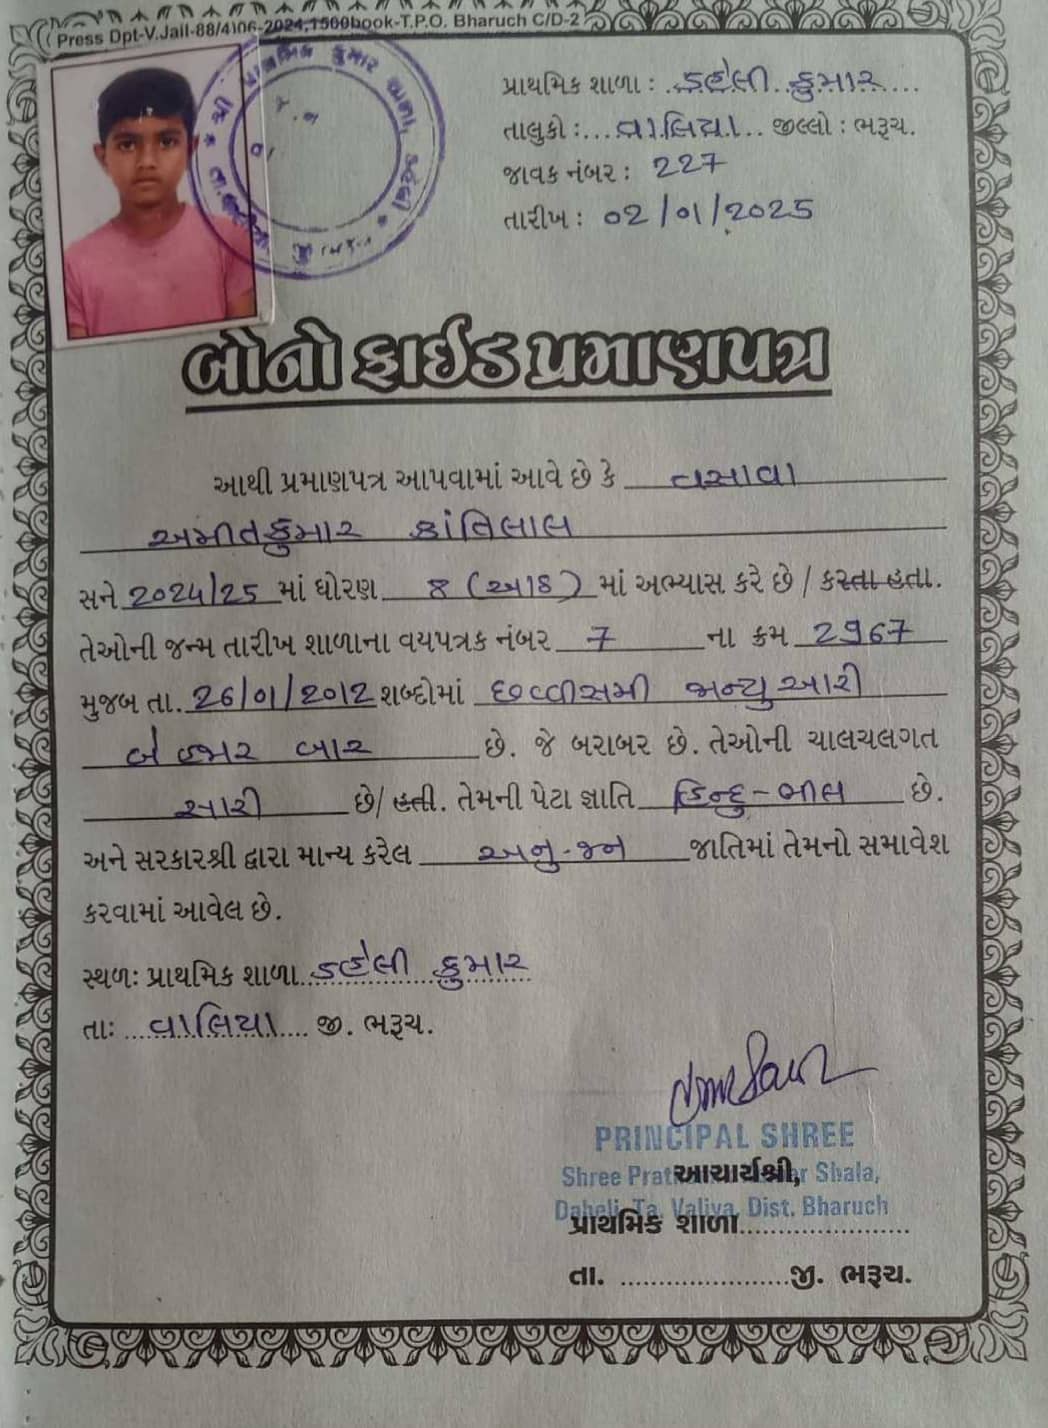 Press Dpt-V.Jail-88/4)06-2024,1500book-T.P.O. Bharuch C/D-2
પ્રાથમિક શાળા : ડહેલી કુમાર
તાલુકો : વાલિયા જીલ્લો : ભરૂચ.
જાવક નંબર : 227
તારીખ : 02/01/2025
બોનોફાઈડ પ્રમાણપત્ર
આથી પ્રમાણપત્ર આપવામાં આવે છે કે વસાવા
અમીતકુમાર કાંતિલાલ
સને 2024/25 માં ધોરણ 8 (આઠ) માં અભ્યાસ કરે છે / કરતા હતા.
તેઓની જન્મ તારીખ શાળાના વયપત્રક નંબર 7 ના ક્રમ 2967
મુજબ તા. 26/01/2012 શબ્દોમાં છવ્વીસમી જાન્યુઆરી
બે હજાર બાર છે. જે બરાબર છે. તેઓની ચાલચલગત
સારી છે/ હતી. તેમની પેટા જ્ઞાતિ હિન્દુ-ભીલ છે.
અને સરકારશ્રી દ્વારા માન્ય કરેલ અનુ-જન જાતિમાં તેમનો સમાવેશ
કરવામાં આવેલ છે.
સ્થળ: પ્રાથમિક શાળા ડહેલી કુમાર
તા: વાલિયા જી. ભરૂચ.
PRINCIPAL SHREE
Shree Shala,
આચાર્યશ્રી,
Daheli, Ta. Valiya, Dist. Bharuch
પ્રાથમિક શાળા
તા. જી. ભરૂચ.